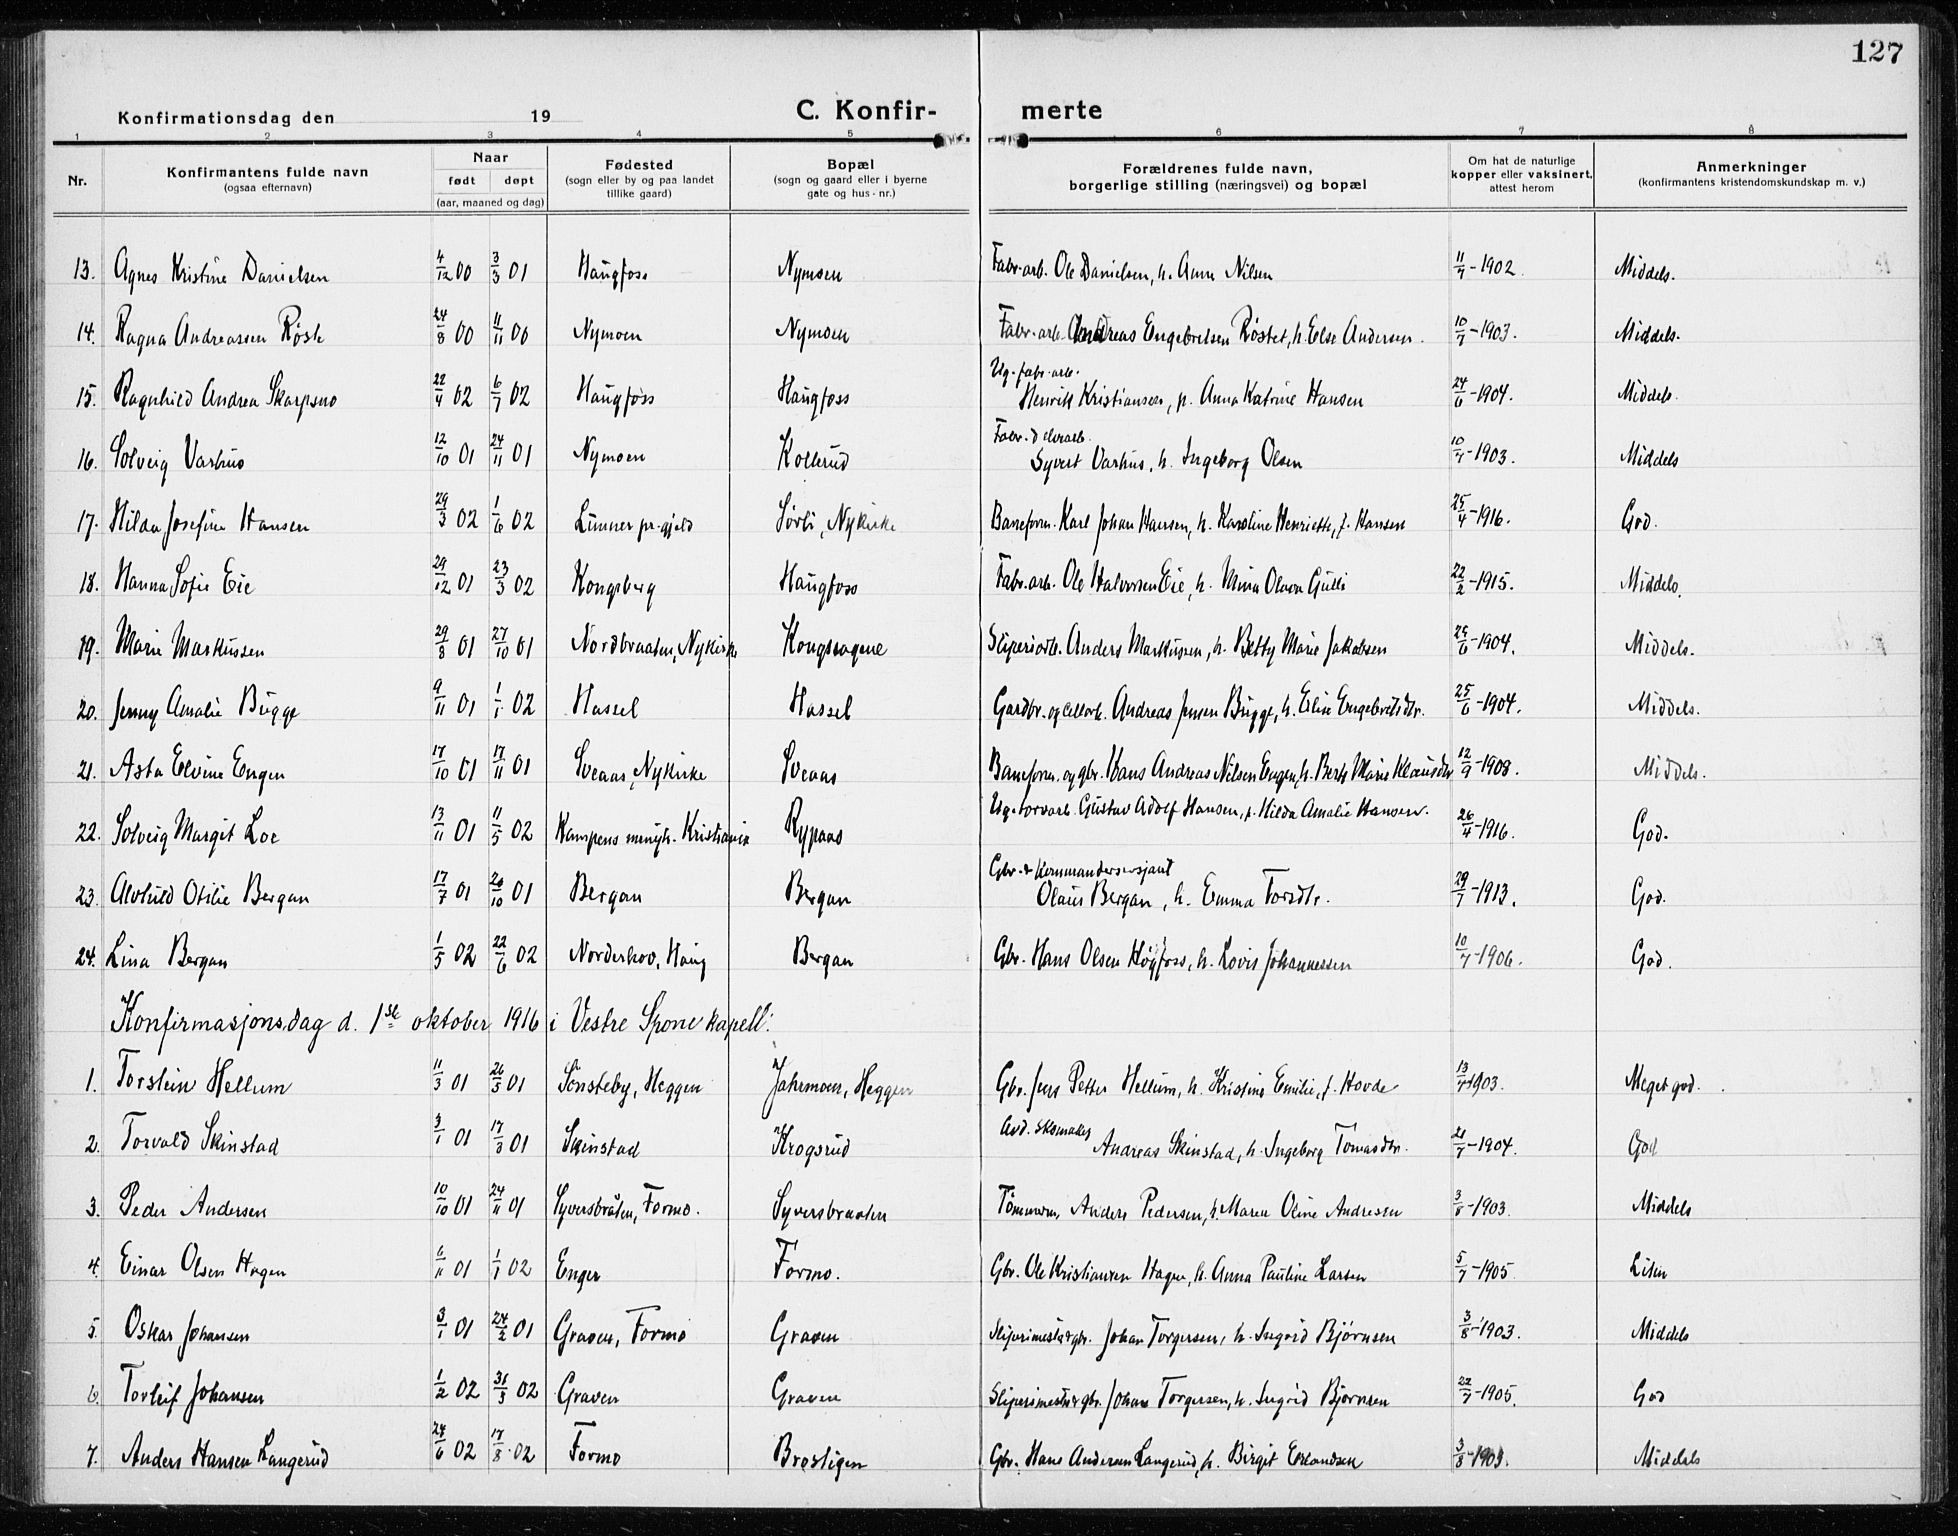 127
Konfirmationsdag den 19 C. Konfir- merte
1 2 3 4 5 6 7 8
Nr. Konfirmantens fulde navn (ogsaa efternavn) Naar født døpt (aar, maaned og dag) Fødested (sogn eller by og paa landet tillike gaard) Bopæl (sogn og gaard eller i byerne gate og hus - nr.) Forældrenes fulde navn, borgerlige stilling (næringsvei) og bopæl Om hat de naturlige kopper eller vaksinert, attest herom Anmerkninger (konfirmantens kristendomskundskap m. v.)
13. Agnes Kristine Danielsen 4/12 00 3/3 01 Haugfoss Nymoen Fabr.arb. Ole Danielsen, h. Anne Nilsen 11/7-1902 Middels.
14. Ragna Andreassen Røste 24/8 00 11/11 00 Nymoen Nymoen Fabr.arb. Andreas Engebretsen Røstet, h. Else Andersen. 10/7-1903. Middels.
15. Ragnhild Andrea Skarpsno 22/4 02 6/7 02 Haugfoss Haugfoss Ug. fabr.arb. Henrik Kristiansen, p. Anna Katrine Hansen 24/6-1904. Middels.
16. Solveig Varhus 12/10 01 24/11 01 Nymoen Kollerud Fabr. Syvert Varhus, h. Ingeborg Olsen 10/7-1903. Middels
17. Hilda Josefine Hansen 29/3 02 1/6 02 Lunner pr.gjeld Sørli, Nykirke Baneform. Karl Johan Hansen, h. Karoline Henriette, f. Hansen 25/4-1916. God.
18. Hanna Sofie Eie 29/12 01 23/3 02 Kongsberg Haugfoss Fabr.arb. Ole Halvorsen Eie, h. Mina Olava Gulli 22/2-1915. Middels.
19. Marie Markussen 29/8 01 27/10 01 Nordbraaten, Nykirke Kongssagene Sliperiarb. Anders Markussen, h. Betty Marie Jakobsen 24/6-1904. Middels.
20. Jenny Amalie Bugge 9/11 01 1/1 02 Hassel Hassel Gardbr. og cellarb. Andreas Jensen Bugge, h. Eline Engebretsdtr. 25/6-1904. Middels.
21. Asta Elvine Engen 17/10 01 17/11 01 Sveaas, Nykirke Sveaas Baneform. og gbr. Hans Andreas Nilsen Engen, h. Berte Marie Klausdtr 12/9-1908. Middels.
22. Solveig Margit Loe 13/11 01 11/5 02 Kampens menigh. Kristiania Rypaas Ug. torvarb. Gustav Adolf Hansen, p. Hilda Amalie Hansen. 26/4-1916. God.
23. Alvhild Otilie Bergan 17/7 01 20/10 01 Bergan Bergan Gbr. & Kommandersersjant Olaus Bergan, h. Emma Torsdtr. 29/7-1913. God.
24. Lina Bergan 1/5 02 22/6 02 Norderhov, Haug Bergan Gbr. Hans Olsen Høgfoss, h. Lovis Johannessen 10/7-1906. God.
Konfirmasjonsdag d. 1ste oktober 1916 i Vestre Spone kapell:
1. Torstein Hellum 11/3 01 26/5 01 Sønsteby, Heggen Jahrmoen, Heggen Gbr. Jens Petter Hellum, h. Kristine Emilie, f. Hovde 13/7-1903. Meget god.
2. Torvald Skinstad 3/1 01 17/3 01 Skinstad Krogsrud Avd. skomaker Andreas Skinstad, h. Ingeborg Tomasdtr. 21/7-1904. God
3. Peder Andersen 10/10 01 24/11 01 Syversbråten, Formo. Syversbraaten Tømmerm. Anders Pedersen, h. Maren Oline Andresen 3/8-1903. Middels
4. Einar Olsen Hagen 6/11 01 1/1 02 Enger Formo. Gbr. Ole Kristiansen Hagen, h. Anna Pauline Larsen 5/7-1905. Liten
5. Oskar Johansen 3/1 01 24/2 01 Graven, Formo Graven Sliperimester & gbr. Johan Torgersen, h. Ingrid Bjørnsen 3/8-1903. Middels
6. Torleif Johansen 1/2 02 31/3 02 Graven Graven Sliperimester & gbr. Johan Torgersen, h. Ingrid Bjørnsen 22/7-1905. God
7. Anders Hansen Langerud 24/6 02 17/8 02 Formo Brostigen Gbr. Hans Andersen Langerud, h. Birgit Erlandsen 3/8-1903. Middels